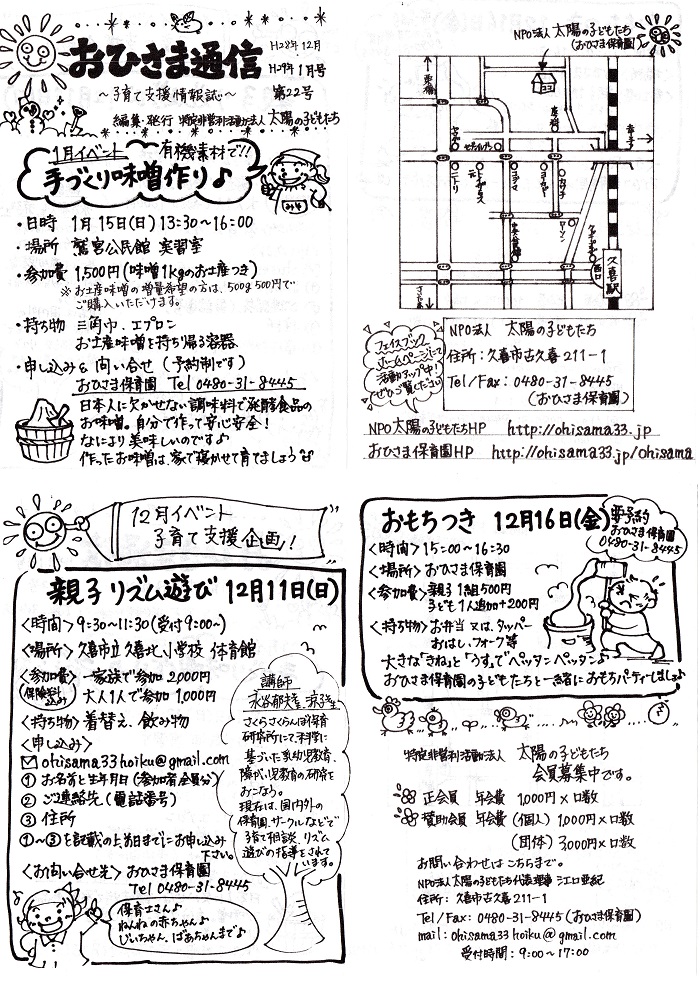 おひさま通信
H28年12月
H29年1月号
～子育て支援情報誌～ 第22号
編集・発行 特定非営利活動法人 太陽の子どもたち
1月イベント 有機素材で!!
手づくり味噌作り♪
みそ
・日時 1月15日(日) 13:30～16:00
・場所 鷲宮公民館 実習室
・参加費 1,500円(味噌1kgのお土産つき)
※お土産味噌の増量希望の方は、500g 500円で
ご購入いただけます。
・持ち物 三角巾、エプロン
お土産味噌を持ち帰る容器
・申し込み & 問い合せ (予約制です)
おひさま保育園 Tel 0480-31-8445
日本人に欠かせない調味料で発酵食品の
お味噌。自分で作って安心安全!
なにより美味しいのです♪
作ったお味噌は、家で寝かせて育てましょう
NPO法人 太陽の子どもたち
(おひさま保育園)
ココ
ニトリ
コジマ
ヨーカドー
ローソン
西口
久喜駅
フェイスブック
ホームページにて
活動アップ中!
ぜひご覧ください
NPO法人 太陽の子どもたち
住所:久喜市古久喜211-1
Tel/Fax: 0480-31-8445
(おひさま保育園)
NPO太陽の子どもたちHP http://ohisama33.jp
おひさま保育園HP http://ohisama33.jp/ohisama
12月イベント
子育て支援企画!
親子リズム遊び 12月11日(日)
<時間> 9:30～11:30 (受付9:00～)
<場所> 久喜市立久喜北小学校 体育館
<参加費> 一家族で参加 2,000円
保険料込み 大人1人で参加 1,000円
<持ち物> 着替え、飲み物
<申し込み>
ohisama33hoiku@gmail.com
① お名前と生年月日(参加者全員分)
② ご連絡先(電話番号)
③ 住所
①～③を記載の上前日までにお申し込み
下さい。
<お問い合せ先> おひさま保育園
Tel 0480-31-8445
保育士さん♪
ねんねの赤ちゃん♪
じいちゃん、ばあちゃんまで♪
講師
さくらさくらんぼ保育
研究所にて科学に
基づいた乳幼児教育、
障がい児教育の研究を
おこなう。
現在は、国内外の
保育園、サークルなどで
子育て相談、リズム
遊びの指導をされて
います。
おもちつき 12月16日(金)
要予約
おひさま保育園
0480-31-8445
<時間> 15:00～16:30
<場所> おひさま保育園
<参加費> 親子1組500円
子ども1人追加+200円
<持ち物> お弁当又は、タッパー
おはし、フォーク等
大きな「きね」と「うす」でペッタンペッタン♪
おひさま保育園の子どもたちと一緒におもちパーティしましょ♪
特定非営利活動法人 太陽の子どもたち
会員募集中です。
正会員 年会費 1,000円×口数
賛助会員 年会費 (個人) 1,000円×口数
(団体) 3,000円×口数
お問い合わせはこちらまで。
NPO法人太陽の子どもたち代表理事 江口亜紀
住所: 久喜市古久喜211-1
Tel/Fax: 0480-31-8445 (おひさま保育園)
mail: ohisama33hoiku@gmail.com
受付時間: 9:00～17:00